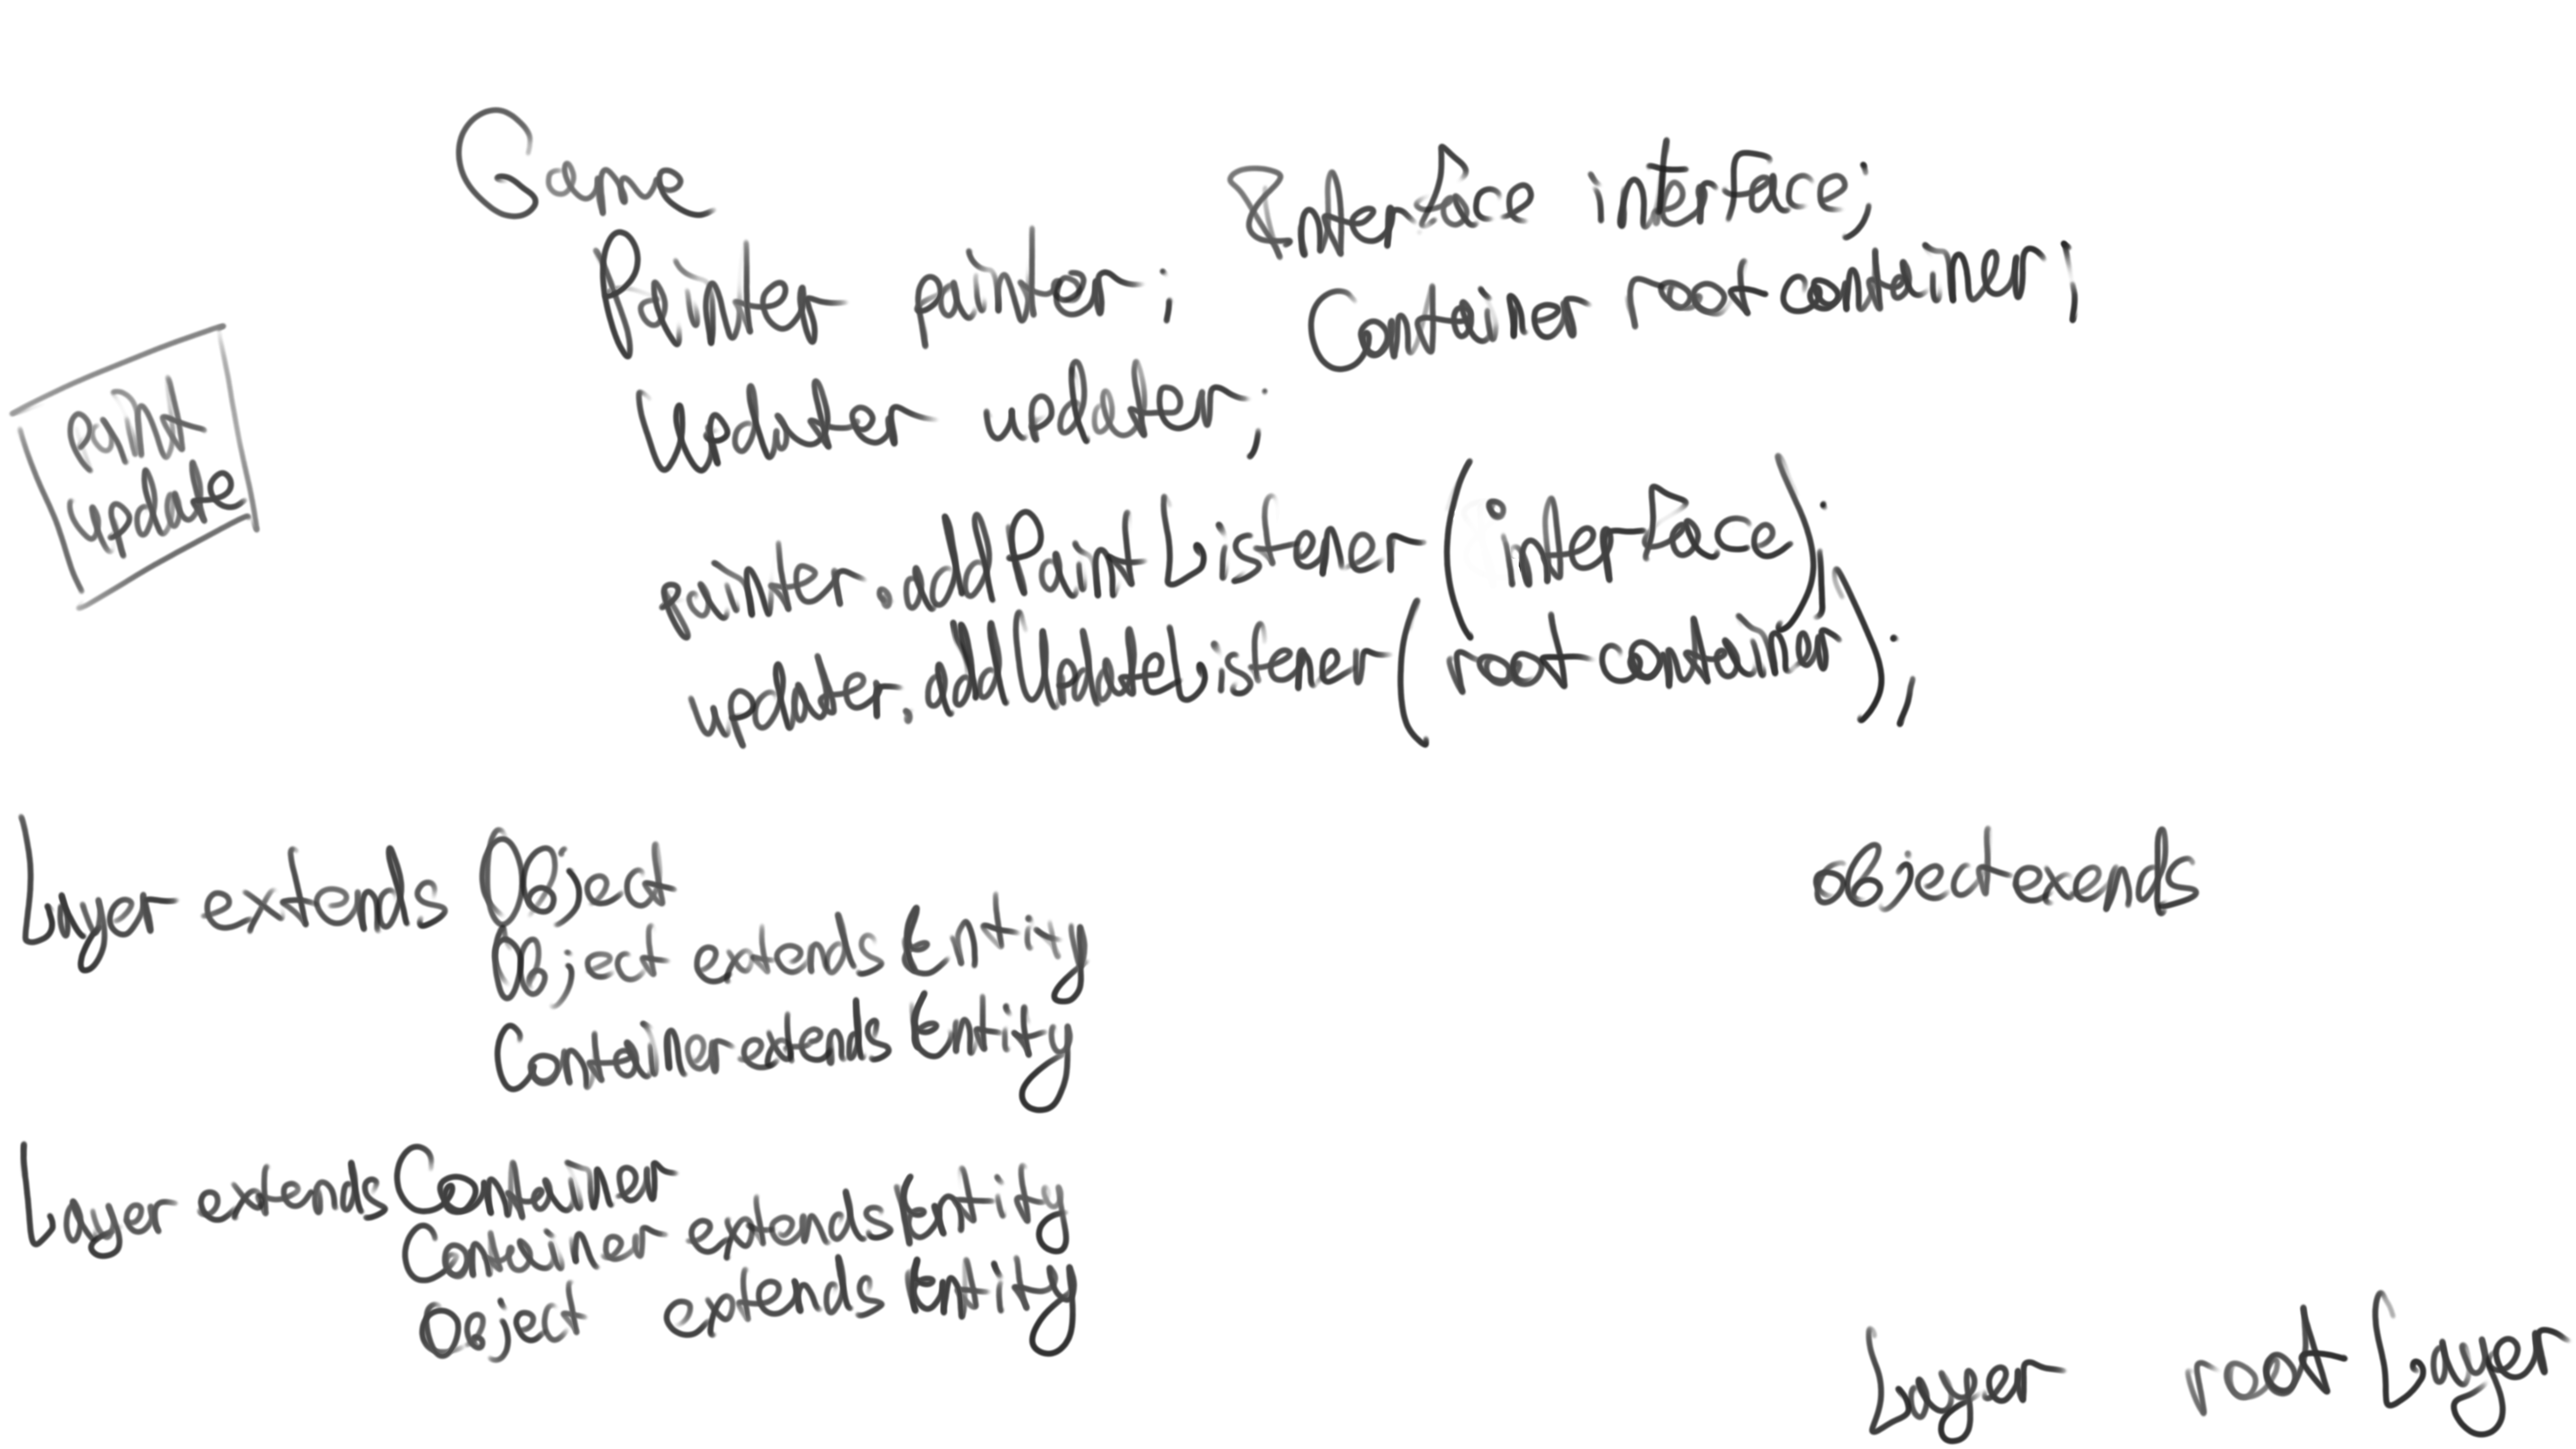 Game
Painter painter;
Interface interface;
Container rootcontainer;
Updater updater;
paint
update
painter.addPaintListener(interface);
updater.addUpdateListener(rootcontainer);
Layer extends Object
Object extends Entity
Container extends Entity
objectexends
Layer extends Container
Container extends Entity
Object extends Entity
Layer rootLayer